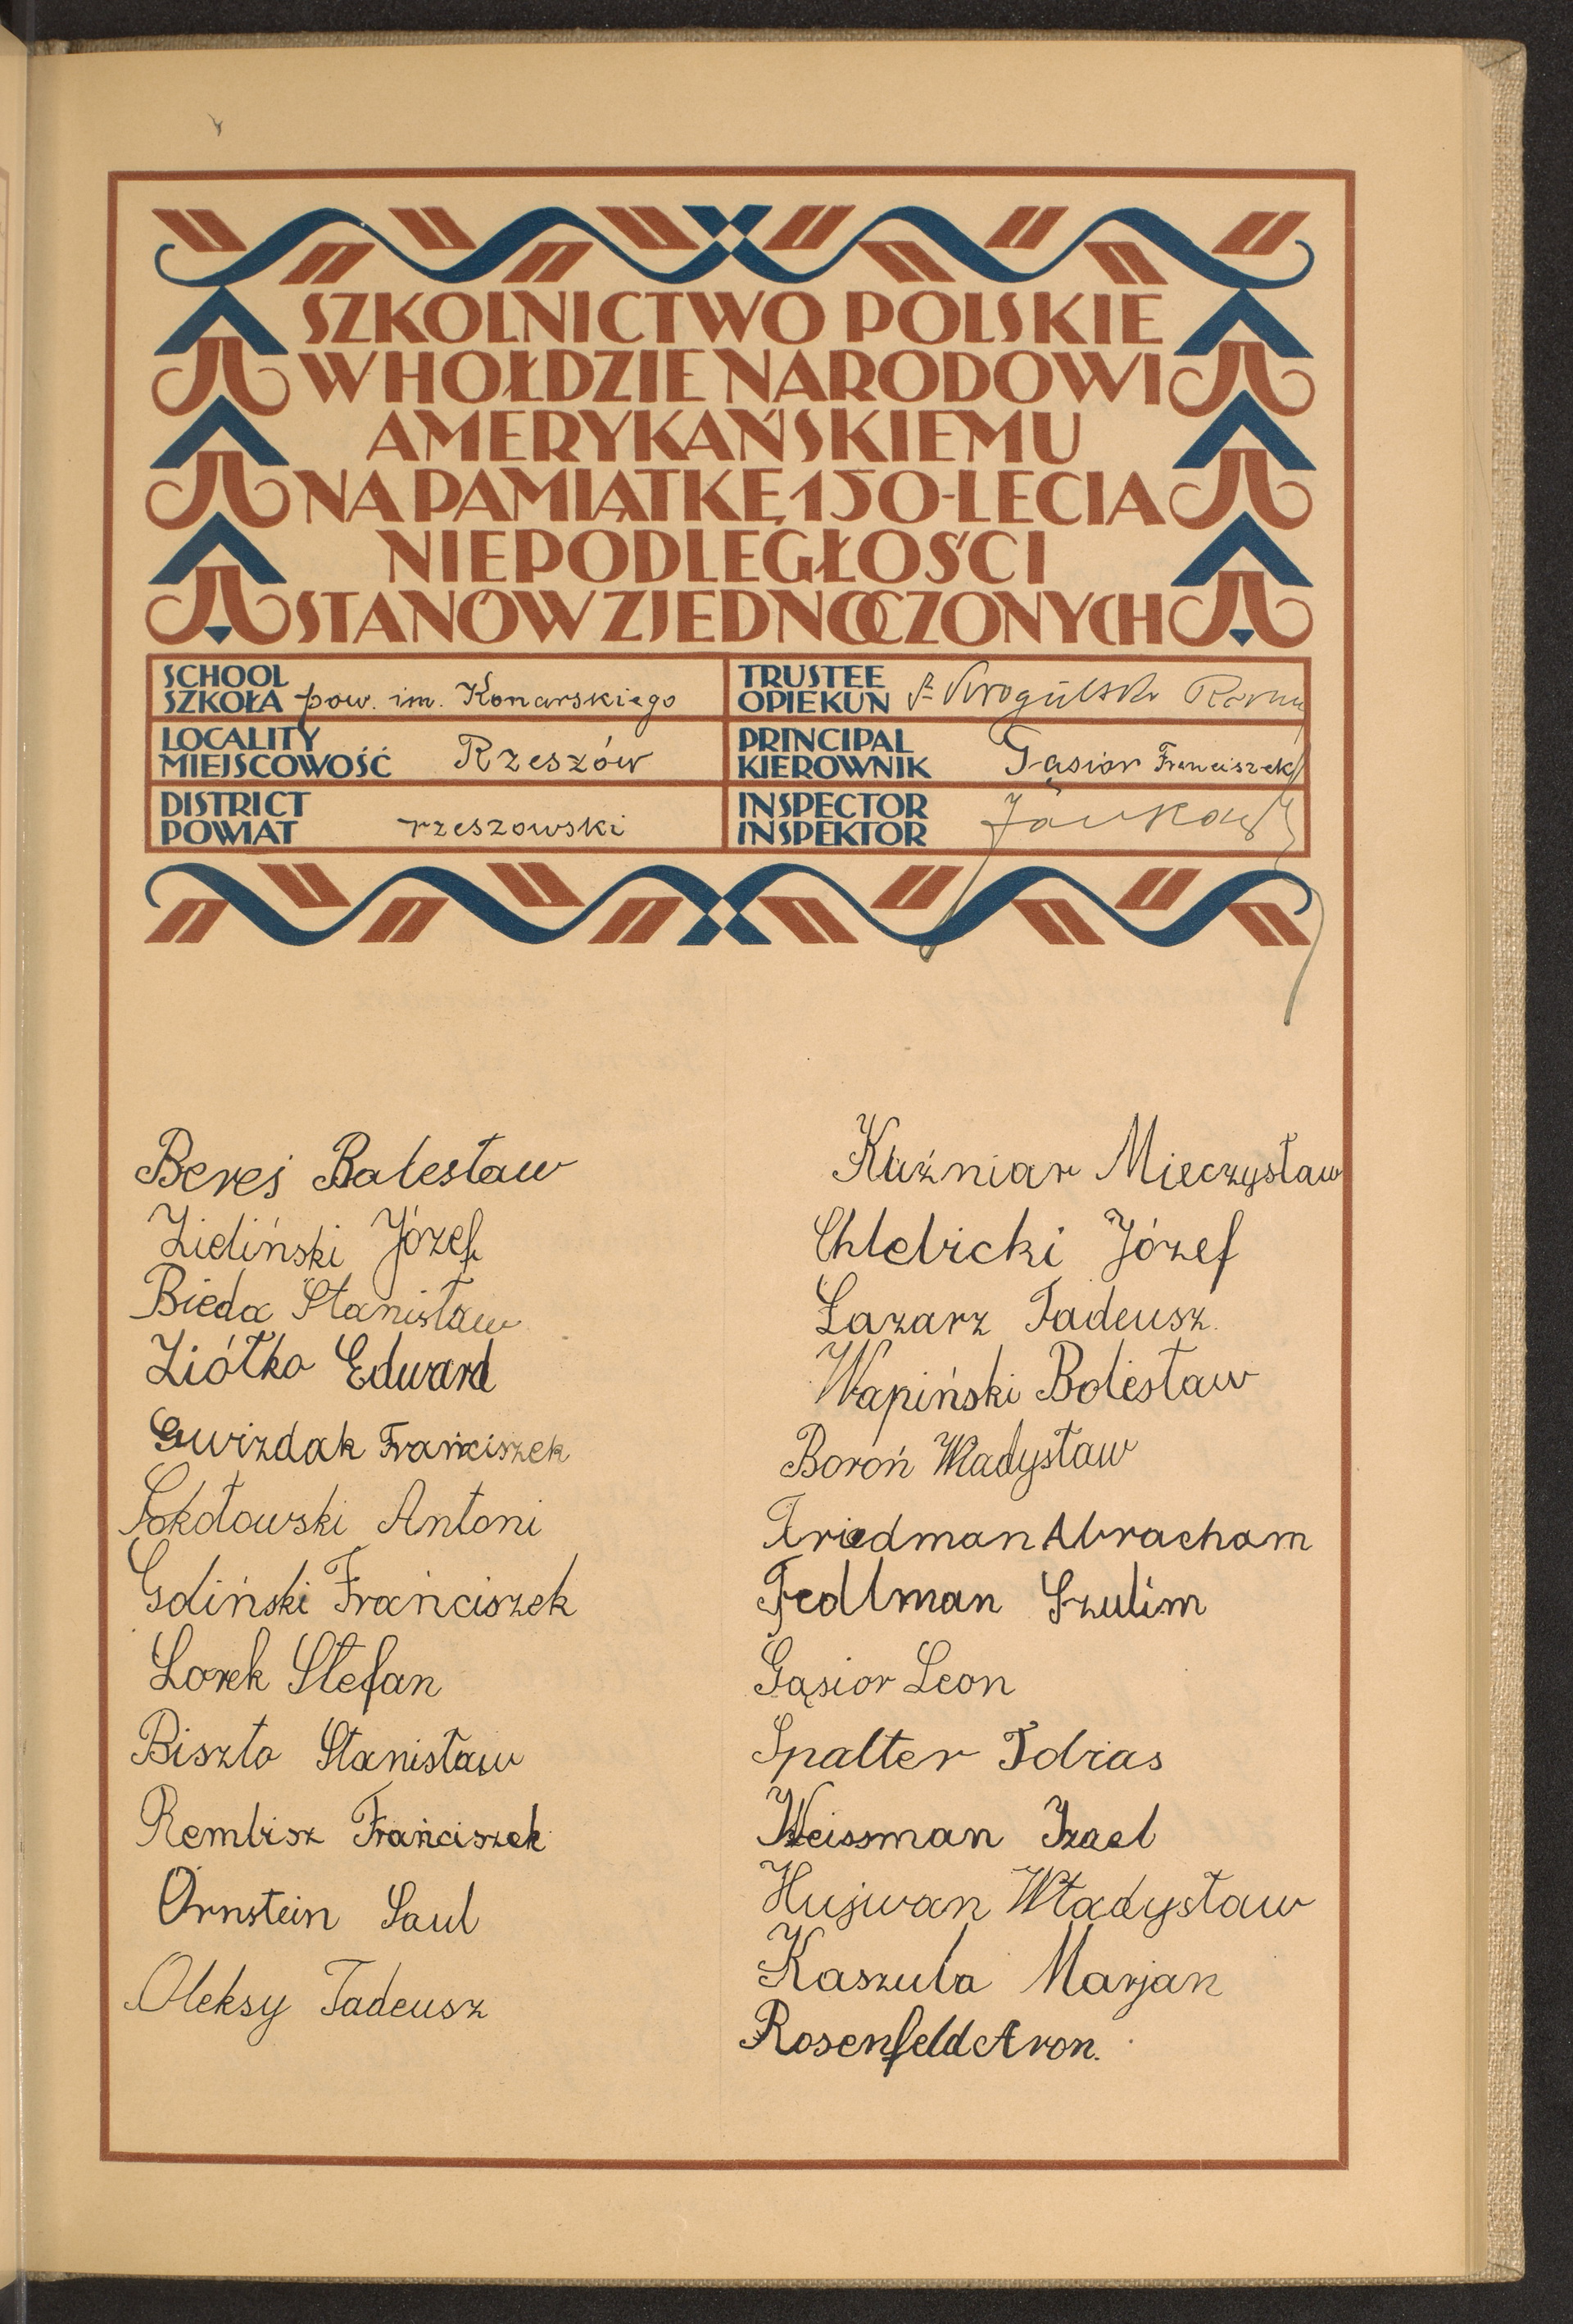 SZKOLNICTWO POLSKIE
W HOŁDZIE NARODOWI
AMERYKAŃSKIEMU
NA PAMIĄTKĘ 150-LECIA
NIEPODLEGŁOŚCI
STANÓW ZJEDNOCZONYCH
SCHOOL
SZKOŁA pow. im. Konarskiego
TRUSTEE
OPIEKUN
LOCALITY
MIEJSCOWOŚĆ Rzeszów
PRINCIPAL
KIEROWNIK Gąsior Franciszek
DISTRICT
POWIAT rzeszowski
INSPECTOR
INSPEKTOR
Bereś Bolesław
Zieliński Józef
Bieda Stanisław
Ziółko Edward
Gwizdak Franciszek
Sokołowski Antoni
Gdiński Franciszek
Lorek Stefan
Biszto Stanisław
Rembisz Franciszek
Ornstein Saul
Oleksy Tadeusz
Kuźniar Mieczysław
Chlebicki Józef
Lazarz Tadeusz
Wapiński Bolesław
Boroń Władysław
Friedman Abracham
Fedlman Szulim
Gąsior Leon
Spalter Tobias
Weissman Izael
Hujwan Władysław
Kaszuba Marjan
Rosenfeld Aron.